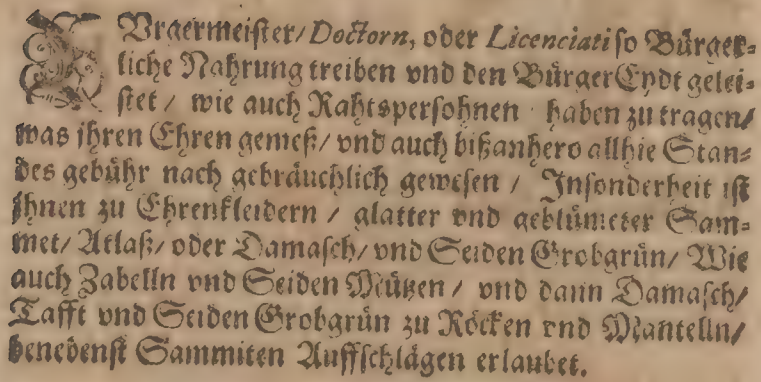 BUrgermeister/ Doctorn, oder Licenciati so Bürger-
liche Nahrung treiben vnd den Bürger Eydt gelei-
stet / wie auch Rahtspersohnen haben zu tragen/
was ihren Ehren gemeß/ vnd auch bißanhero allhie Stan-
des gebühr nach gebräuchlich gewesen / Insonderheit ist
ihnen zu Ehrenkleidern / glatter vnd geblümeter Sam-
met/ Atlaß/ oder Damasch/ vnd Seiden Grobgrün/ Wie
auch Zabelln vnd Seiden Mützen / vnd dann Damasch/
Tafft vnd Seiden Grobgrün zu Röcken vnd Mantelln/
benebenst Sammiten Auffschlägen erlaubet.